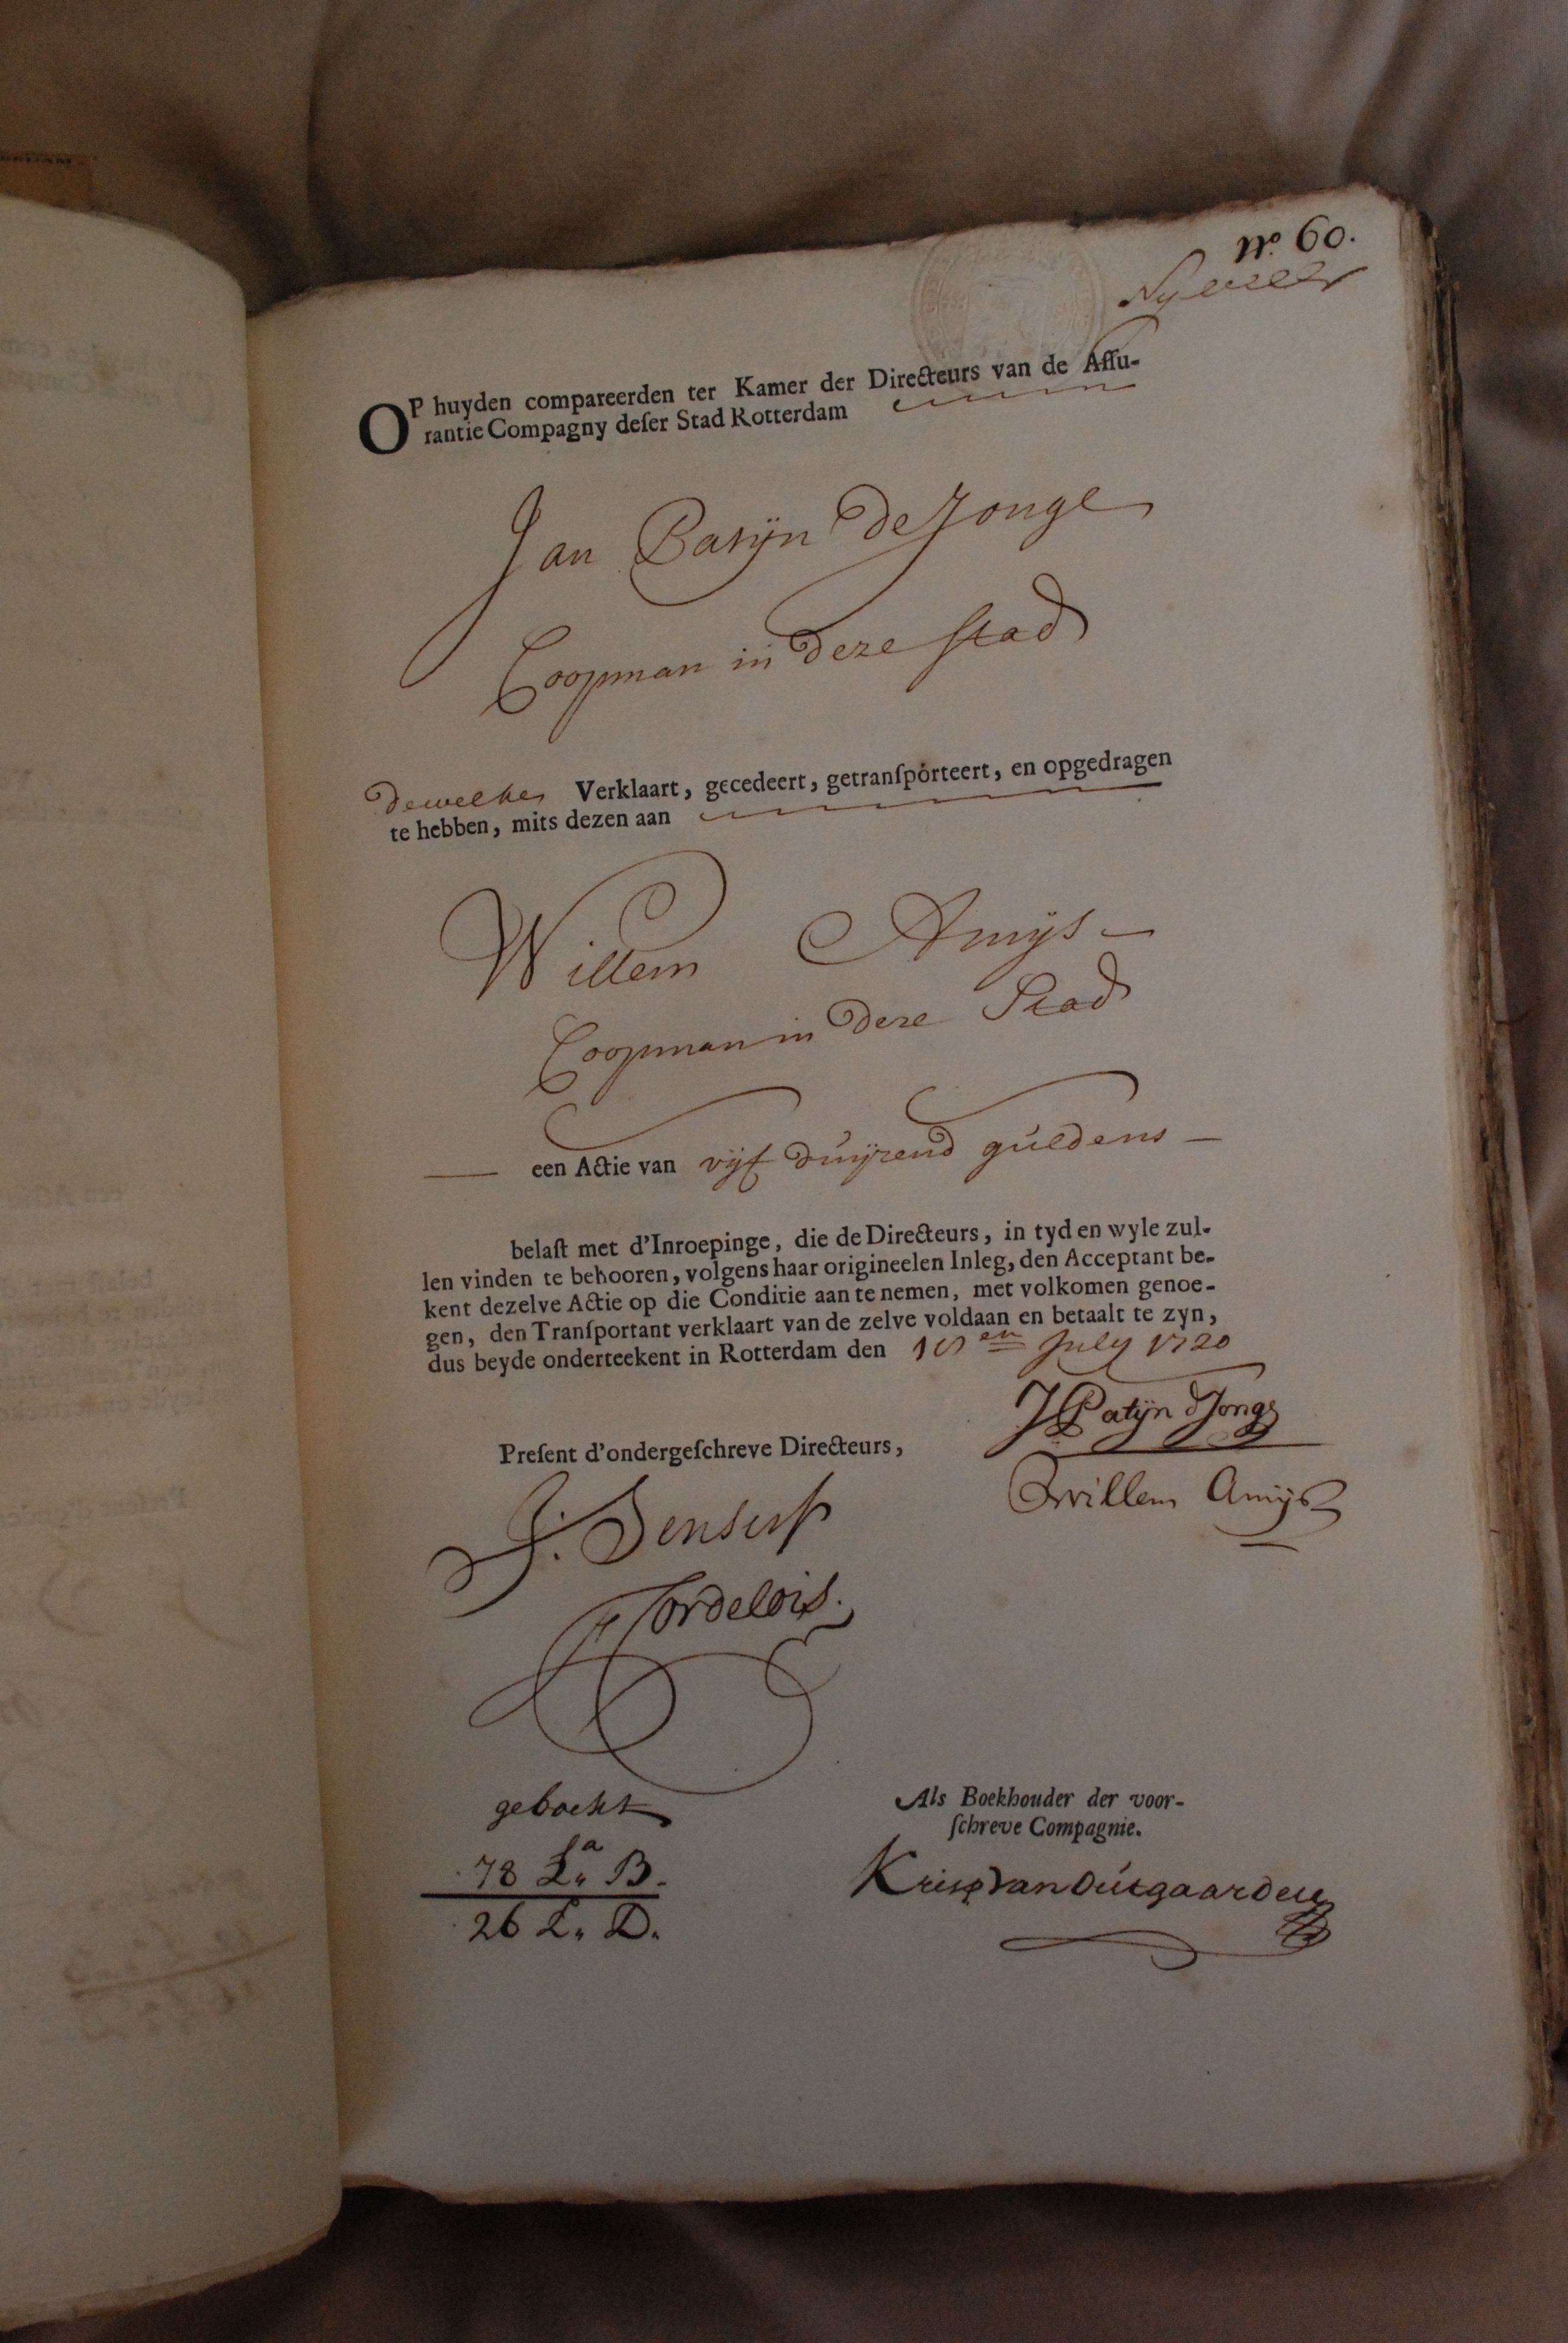 No. 60.
OP huyden compareerden ter Kamer der Directeurs van de Aſſu-
rantie Compagny deſer Stad Rotterdam
Jan Patijn de Jonge
Coopman in deze stad
dewelke Verklaart, gecedeert, getranſporteert, en opgedragen
te hebben, mits dezen aan
Willem Amijs
Coopman in deze Stad
een Actie van vijf duijzend guldens
belaſt met d'Inroepinge, die de Directeurs, in tyd en wyle zul-
len vinden te behooren, volgens haar origineelen Inleg, den Acceptant be-
kent dezelve Actie op die Conditie aan te nemen, met volkomen genoe-
gen, den Tranſportant verklaart van de zelve voldaan en betaalt te zyn,
dus beyde onderteekent in Rotterdam den July 1720
J Patijn d Jonge
Preſent d'ondergeſchreve Directeurs,
Willem Amijs
J. Senserf
gebockt
Als Boekhouder der voor-
ſchreve Compagnie.
78 La B.
26 L. D.